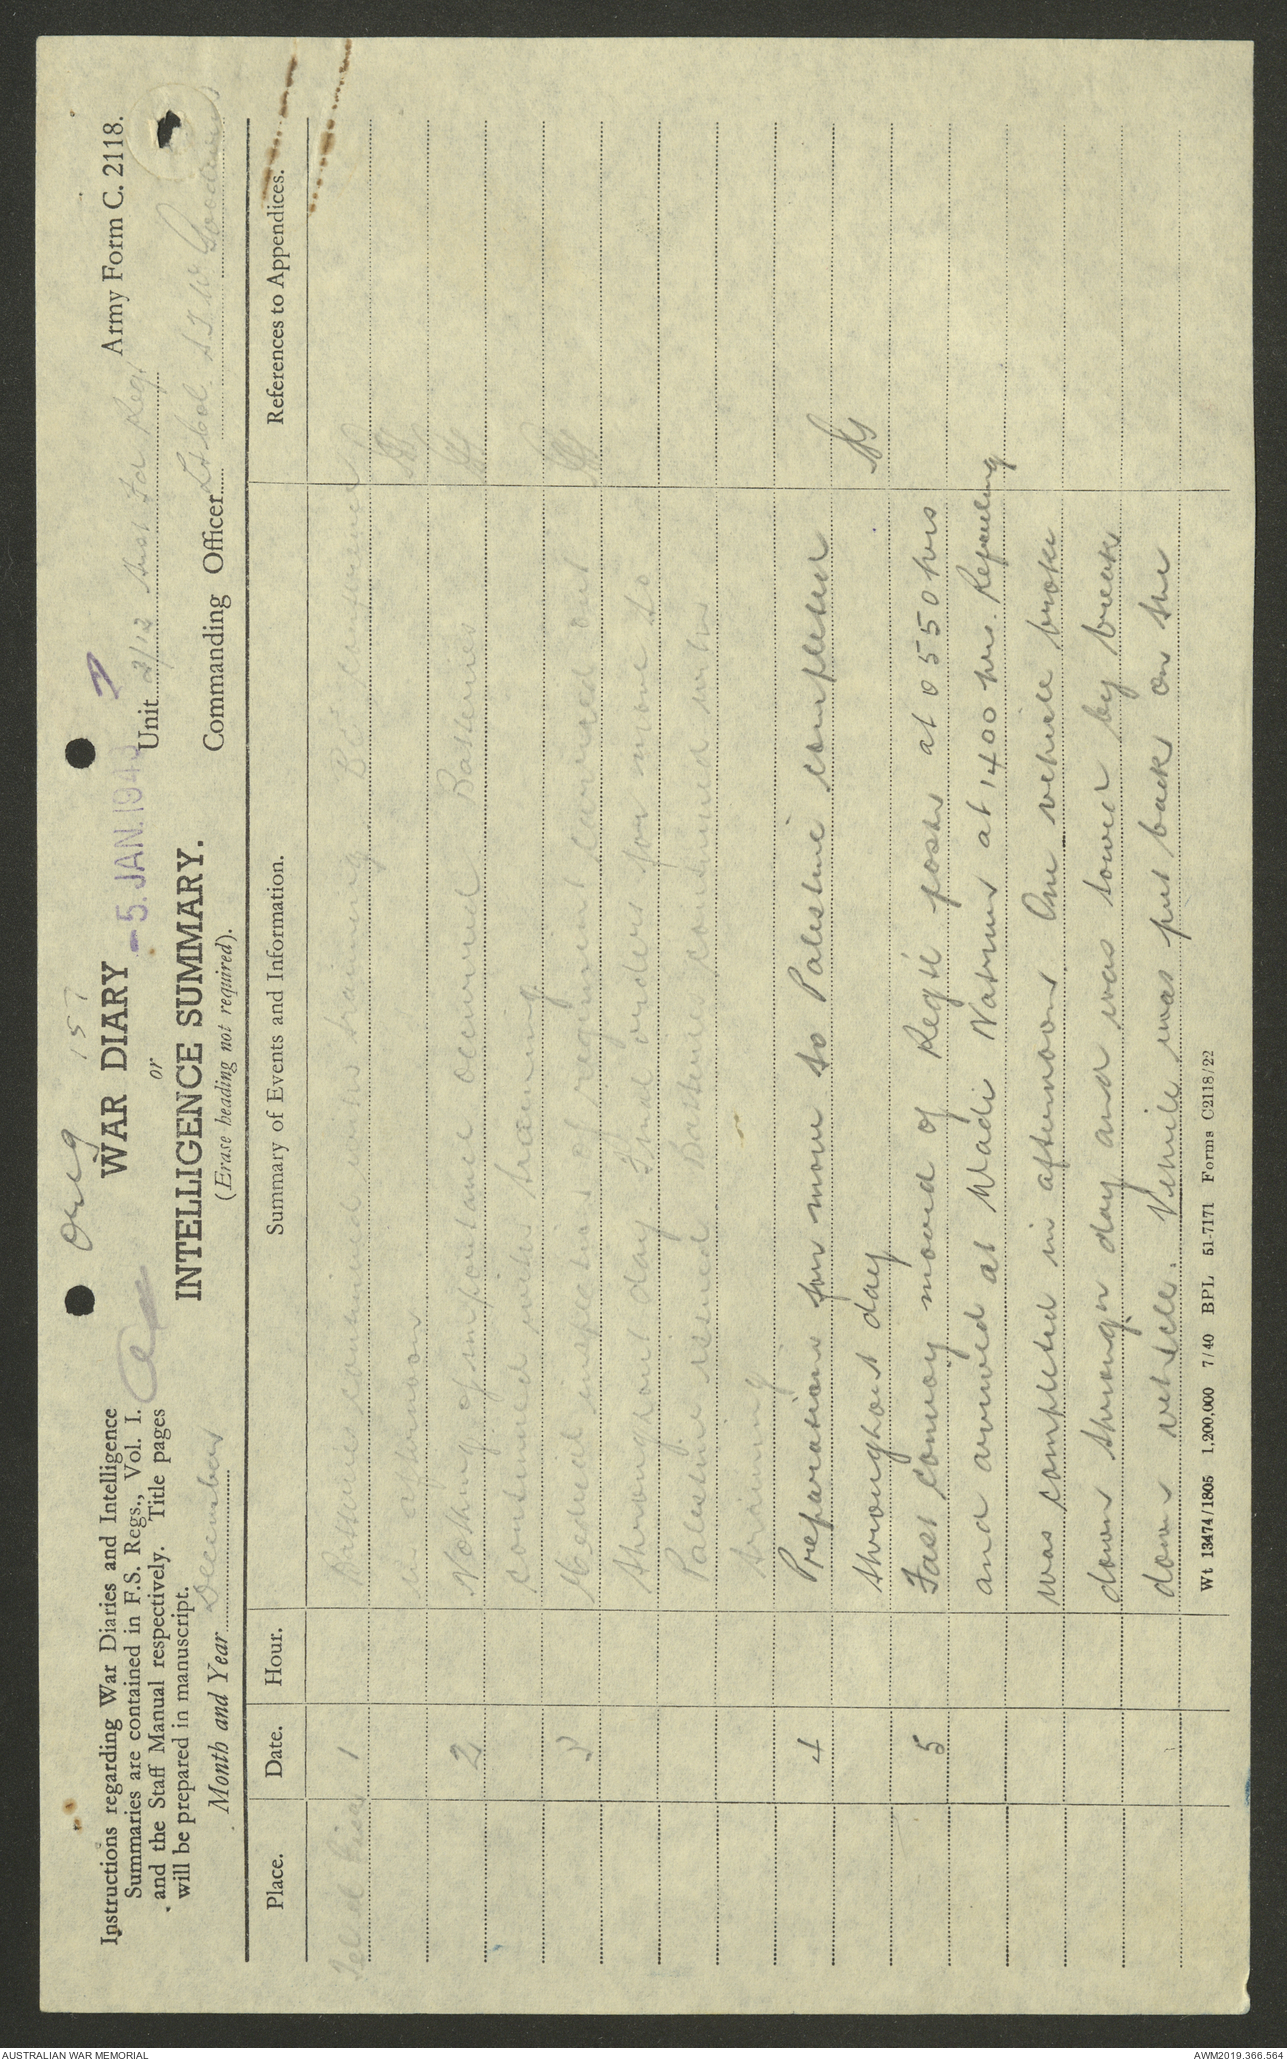 Orig 157
Instructions regarding War Diaries and Intelligence
Summaries are contained in F.S. Regs., Vol. I.
and the Staff Manual respectively. Title pages
will be prepared in manuscript.
Month and Year December
WAR DIARY
or
INTELLIGENCE SUMMARY.
(Erase heading not required).
-5. JAN. 194
7
Army Form C. 2118.
Unit 2/12 Aust Fd Reg
Commanding Officer Lt Col S.T.W. Goodwin
Place. Date. Hour. Summary of Events and Information. References to Appendices.
1 Batteries continued with training. conference
afternoon
2 Nothing of importance occurred Batteries
continued with training.
3 inspection of regiment carried out
throughout day. Final orders for move to
Palestine issued. Batteries continued with
training
4 Preparations for move to Palestine completed
throughout day
5 Fast convoy moved of Reg't posts at 0550 hrs
and arrived at Wadi Natrun at 1400 hrs. Refueling
was completed in afternoon. One vehicle broke
down through day and was towed by break
down vehicle. Vehicle was put back on the
Wt 13474/1805 1,200,000 7/40 BPL 51-7171 Forms C2118/22
AUSTRALIAN WAR MEMORIAL
AWM2019.366.564